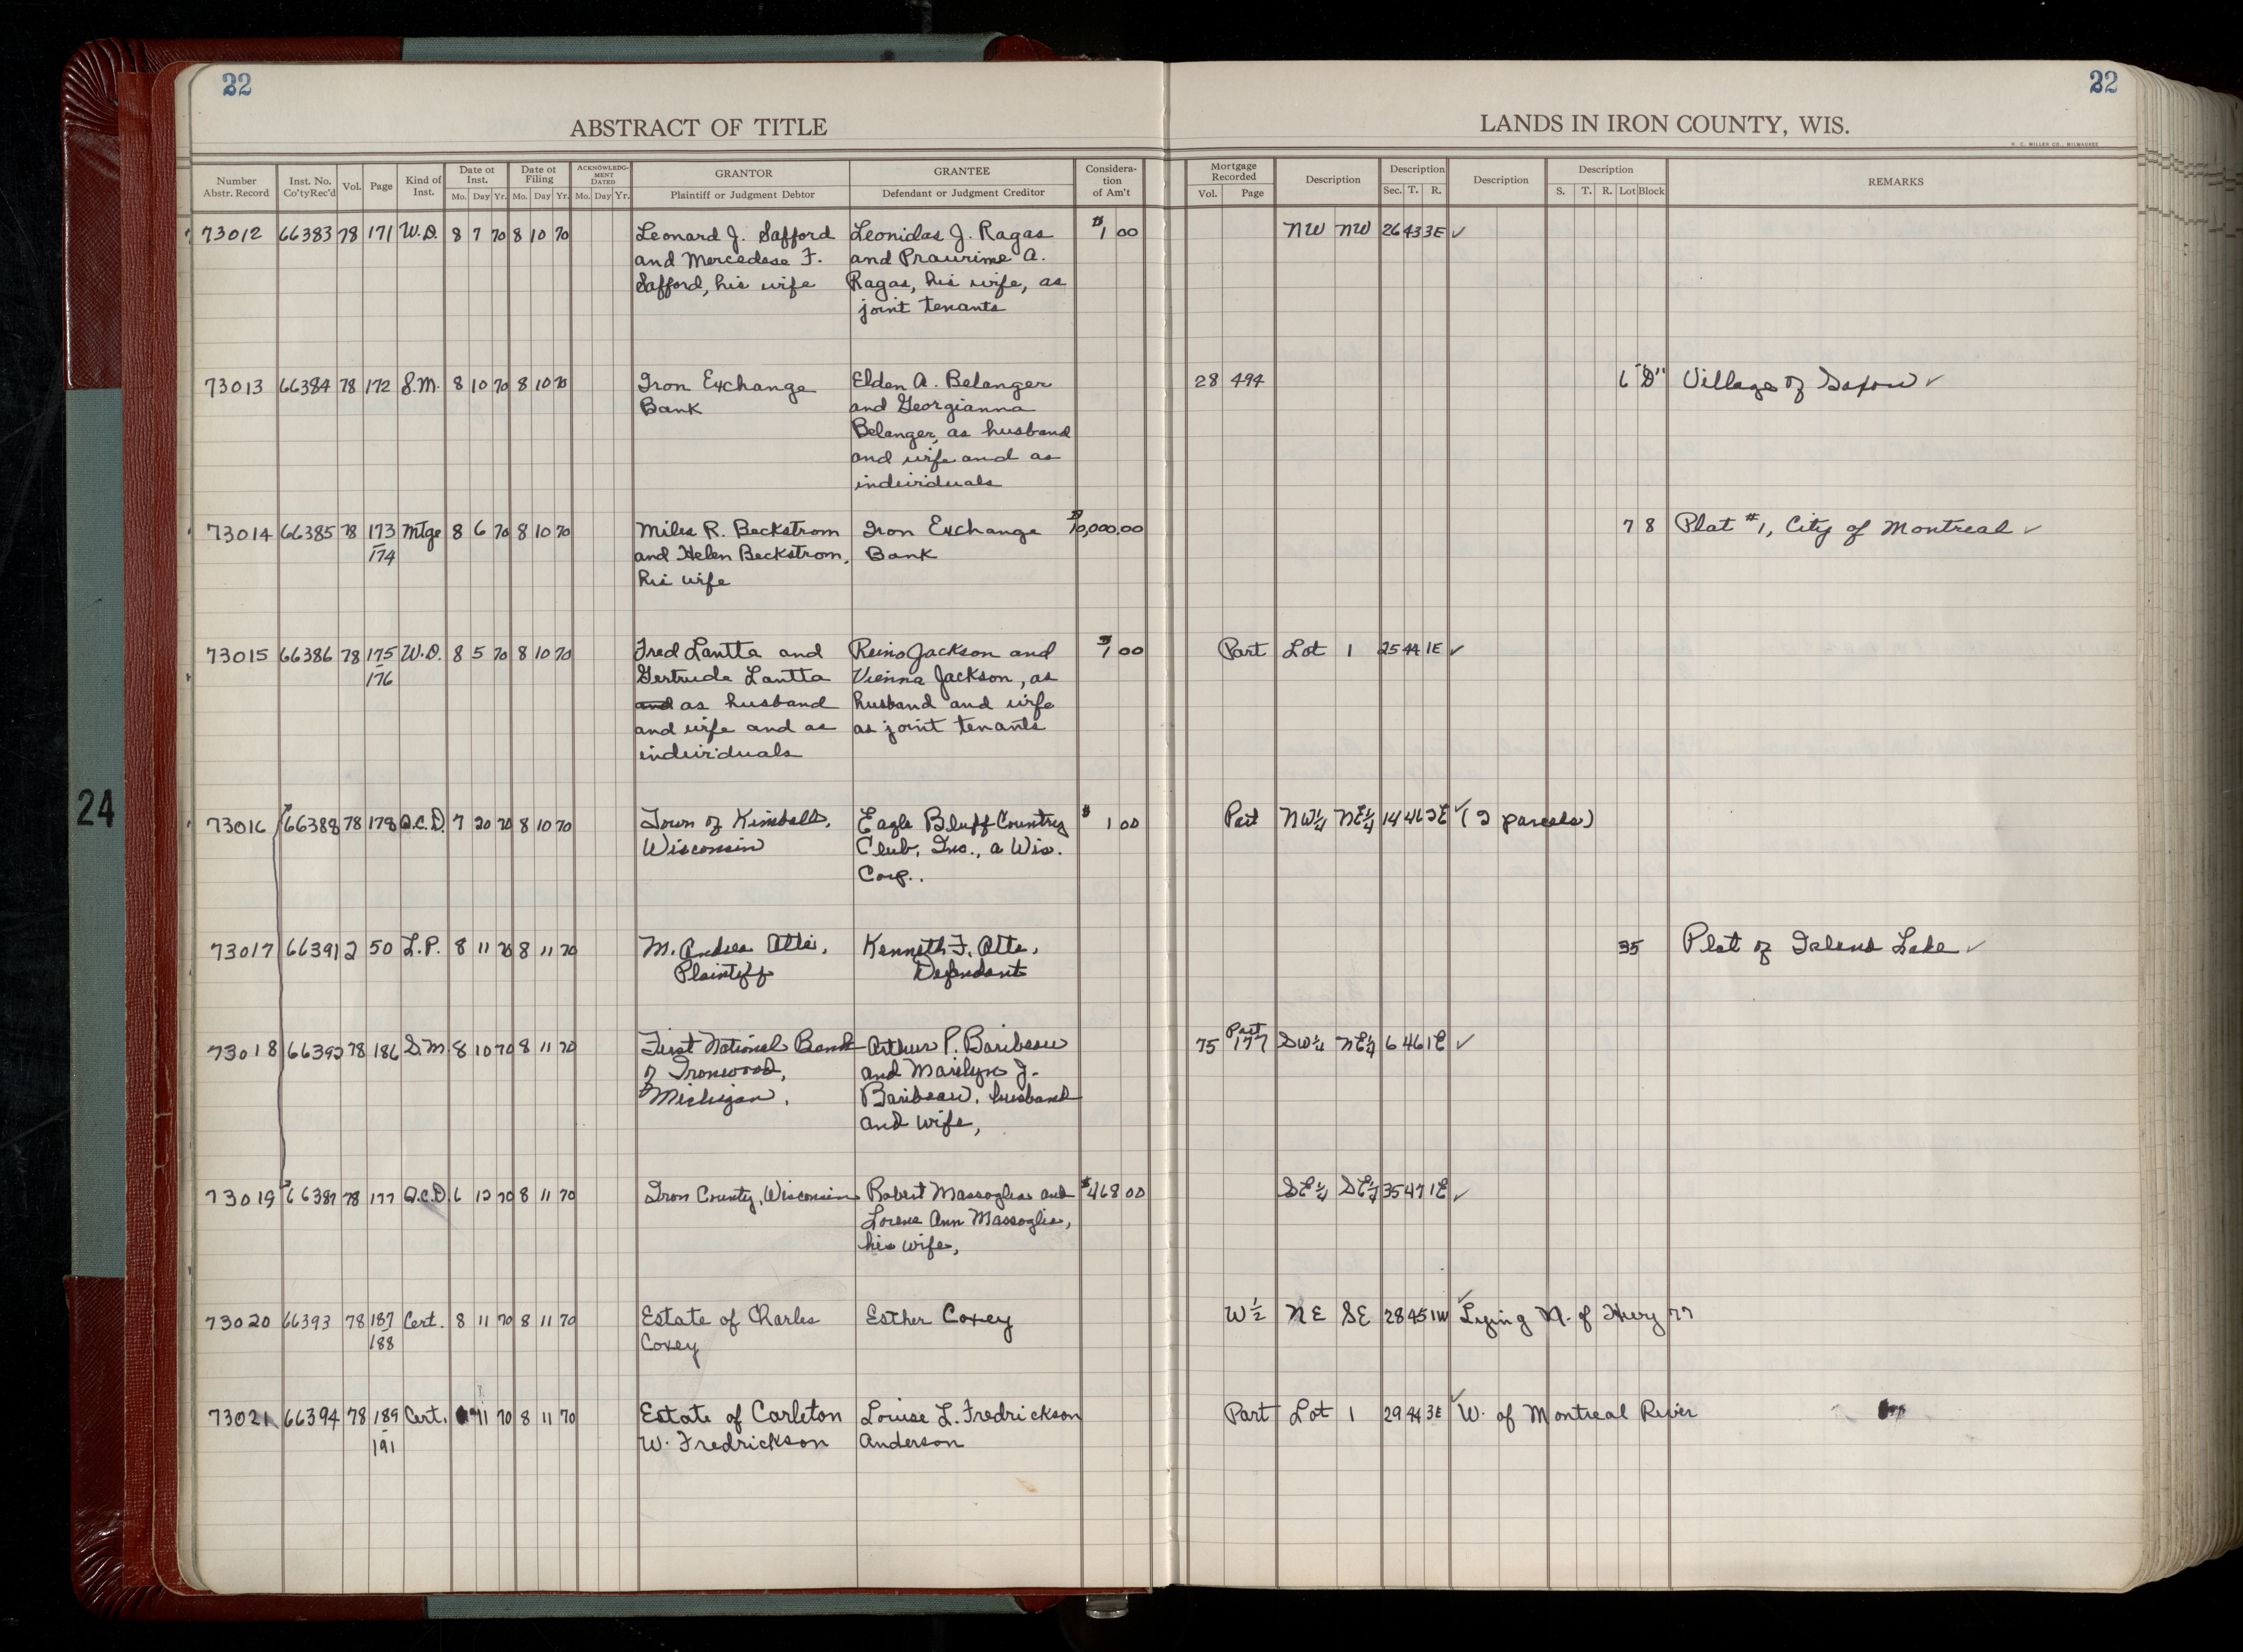 22
22
ABSTRACT OF TITLE
LANDS IN IRON COUNTY, WIS.
H. C. MILLER CO., MILWAUKEE
Number Abstr. Record
Inst. No. Co'tyRec'd
Vol.
Page
Kind of Inst.
Date of Inst.
Mo. Day Yr.
Date of Filing
Mo. Day Yr.
ACKNOWLEDGMENT DATED
Mo. Day Yr.
GRANTOR
Plaintiff or Judgment Debtor
GRANTEE
Defendant or Judgment Creditor
Consideration of Am't
Mortgage Recorded
Vol. Page
Description
Description
Sec. T. R.
Description
Description
S. T. R. Lot Block
REMARKS
73012 66383 78 171 W.D. 8 7 70 8 10 70 Leonard J. Safford Leonidas J. Ragas $1 00 NW NW 26 43 3E ✓
and Mercedese F. and Praurime A.
Safford, his wife Ragas, his wife, as
joint tenants
73013 66384 78 172 S.M. 8 10 70 8 10 70 Iron Exchange Elden A. Belanger 28 494 6 "D" Village of Saxon ✓
Bank and Georgianna
Belanger, as husband
and wife and as
individuals
73014 66385 78 173 Mtge 8 6 70 8 10 70 Miles R. Beckstrom Iron Exchange $10,000.00 7 8 Plat #1, City of Montreal ✓
174 and Helen Beckstrom, Bank
his wife
73015 66386 78 175 W.D. 8 5 70 8 10 70 Fred Lantta and Reino Jackson and $1 00 Part Lot 1 25 44 1E ✓
176 Gertrude Lantta Vienna Jackson, as
and as husband husband and wife
and wife and as as joint tenants
individuals
73016 66388 78 178 Q.C.D. 7 20 70 8 10 70 Town of Kimball, Eagle Bluff Country $1 00 Part NW¼ NE¼ 14 46 2E ✓ (2 parcels)
Wisconsin Club, Inc., a Wis.
Corp..
73017 66391 2 50 L.P. 8 11 70 8 11 70 M. Andrea Atte, Kenneth F. Atte, 35 Plat of Island Lake ✓
Plaintiff Defendant
73018 66392 78 186 S.M. 8 10 70 8 11 70 First National Bank Arthur P. Baribeau 75 177 Part SW¼ NE¼ 6 46 1E ✓
of Ironwood, and Marilyn J.
Michigan, Baribeau, husband
and wife,
73019 66387 78 177 Q.C.D. 6 12 70 8 11 70 Iron County, Wisconsin Robert Massoglia and $468 00 SE¼ SE¼ 35 47 1E ✓
Lorena Ann Massoglia,
his wife,
73020 66393 78 187 Cert. 8 11 70 8 11 70 Estate of Charles Esther Coxey W½ NE SE 28 45 1W ✓ Lying N. of Hwy 77
188 Coxey
73021 66394 78 189 Cert. 11 70 8 11 70 Estate of Carleton Louise L. Fredrickson Part Lot 1 29 44 3E ✓ W. of Montreal River
191 W. Fredrickson Anderson
24